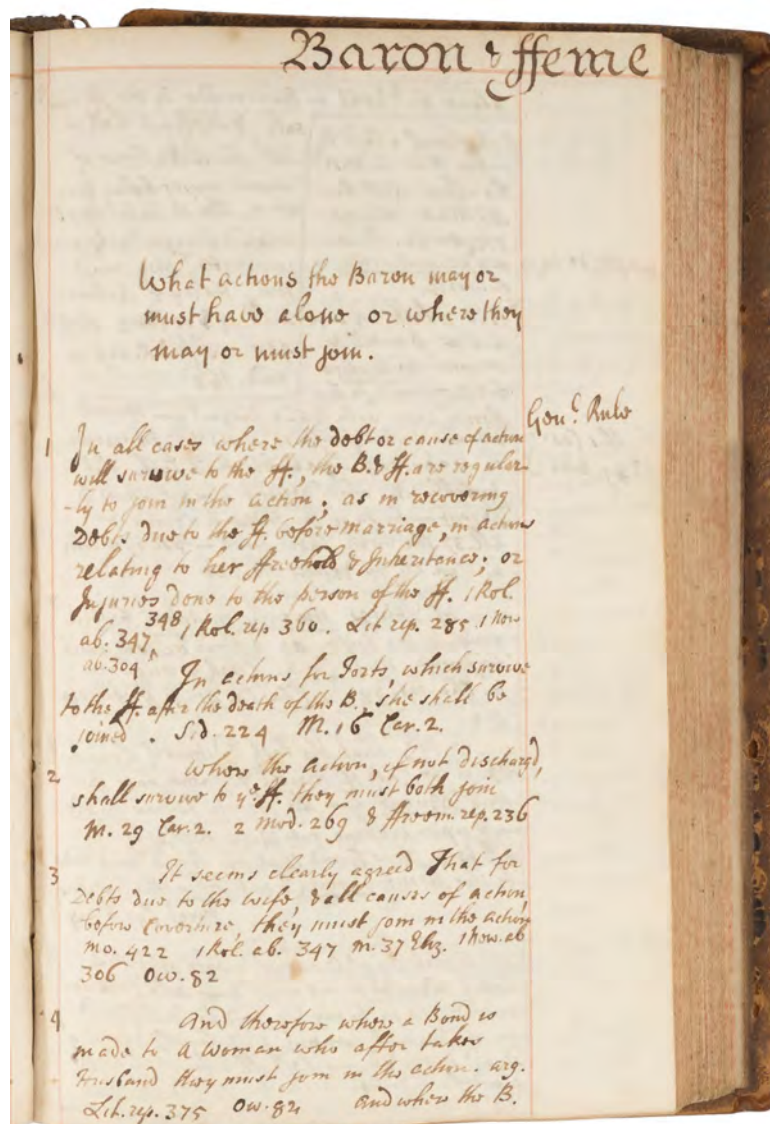 Baron & ffeme
What actions the Baron may or
must have alone or where they
may or must join.
Gen.l Rule
1 In all cases where the debt or cause of action
will survive to the ff., the B. & ff. are regular-
-ly to join in the action; as in recovering
Debts due to the ff. before marriage, in actions
relating to her ffreehold & Inheritance; or
Injuries done to the person of the ff. 1 Rol.
ab. 347, 348 1 Rol. rep. 360. Lit. rep. 285 1 New
ab. 304
In actions for Torts, which survive
to the ff. after the death of the B., she shall be
joined. Sid. 224 M. 16 Car. 2.
2 Where the action, if not discharg'd,
shall survive to ye ff. they must both join
M. 29 Car. 2. 2 Mod. 269 & ffreem. rep. 236
3 It seems clearly agreed That for
Debts due to the wife, & all causes of action,
before Coverture, they must join in the action
Mo. 422 1 Rol. ab. 347 M. 37 Eliz. 1 New. ab
306 Ow. 82
4 And therefore where a Bond is
made to a woman who after takes
Husband they must join in the action. arg.
Lit. rep. 375 Ow. 82 and where the B.